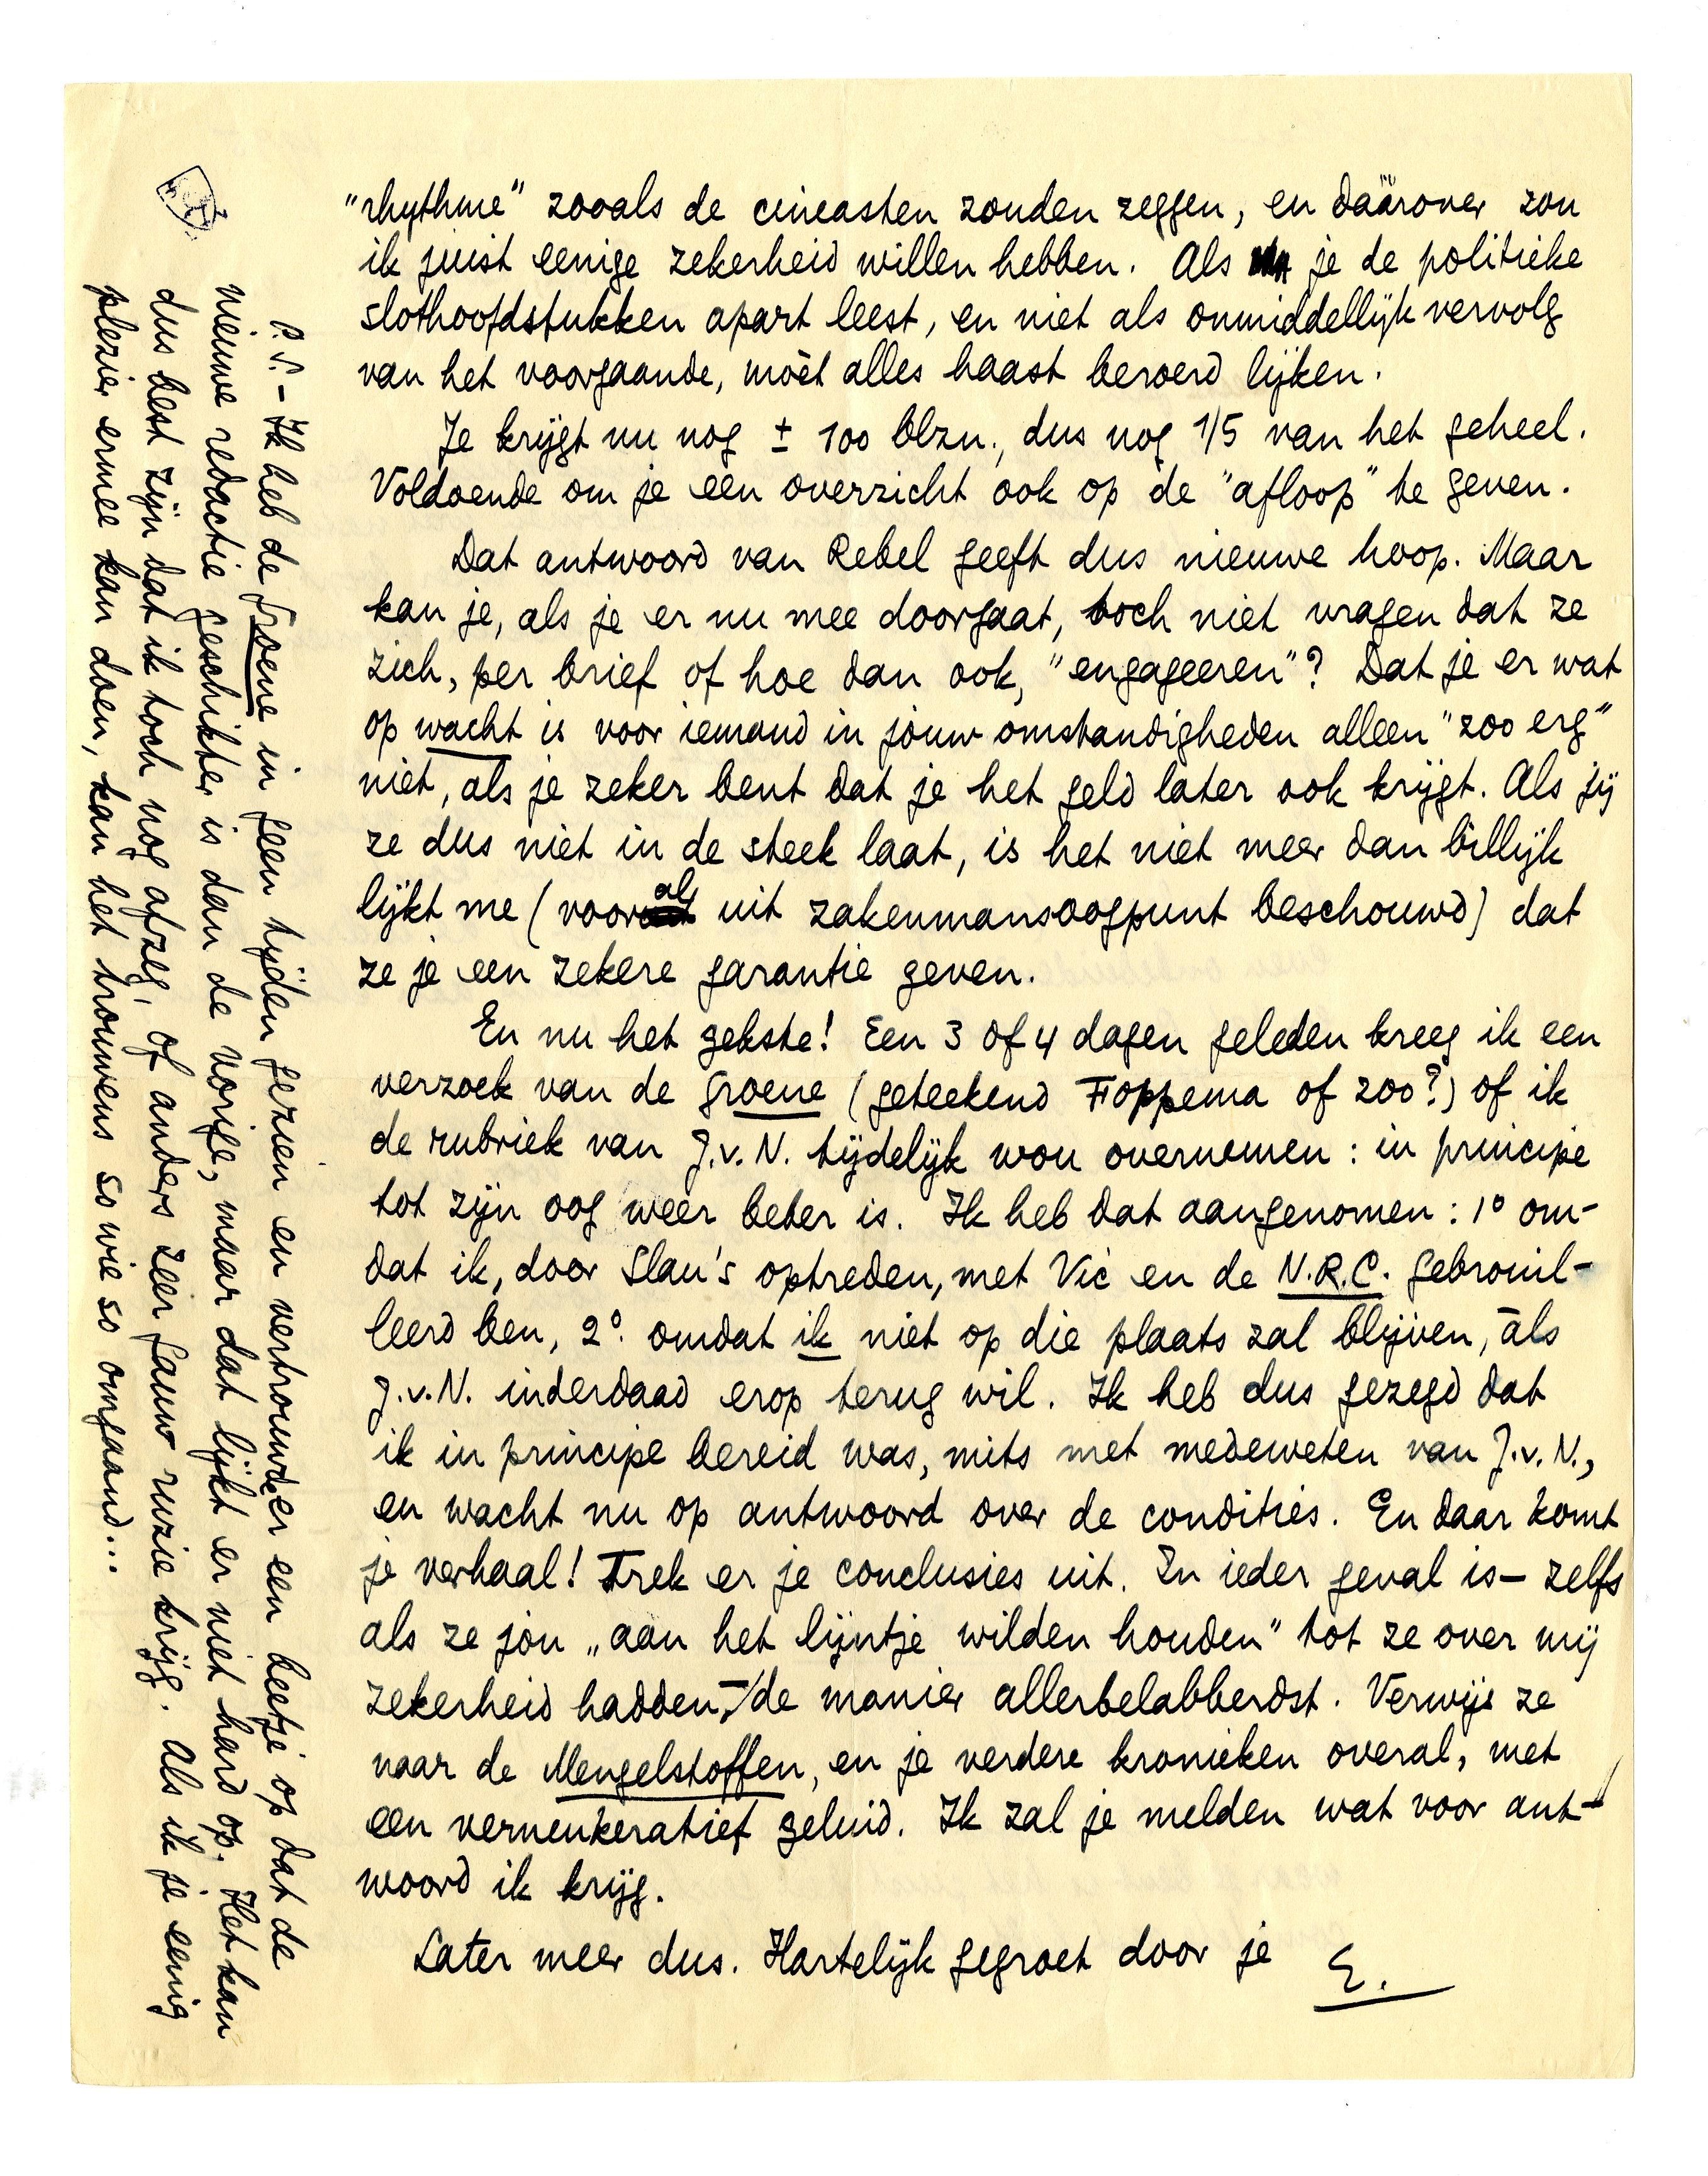 "rhythme" zooals de cineasten zouden zeggen, en dáárover zou
ik juist eenige zekerheid willen hebben. Als je de politieke
slothoofdstukken apart leest, en niet als onmiddellijk vervolg
van het voorgaande, mòèt alles haast beroerd lijken.
Je krijgt nu nog ± 100 blzn., dus nog 1/5 van het geheel.
Voldoende om je een overzicht ook op de "afloop" te geven.
Dat antwoord van Rebel geeft dus nieuwe hoop. Maar
kan je, als je er nu mee doorgaat, toch niet vragen dat ze
zich, per brief of hoe dan ook, "engageeren"? Dat je er wat
op wacht is voor iemand in jouw omstandigheden alleen "zoo erg"
niet, als je zeker bent dat je het geld later ook krijgt. Als jij
ze dus niet in de steek laat, is het niet meer dan billijk
lijkt me (vooral uit zakenmansoogpunt beschouwd) dat
ze je een zekere garantie geven.
En nu het gekste! Een 3 of 4 dagen geleden kreeg ik een
verzoek van de Groene (geteekend Foppema of zoo?) of ik
de rubriek van J.v.N. tijdelijk wou overnemen: in principe
tot zijn oog weer beter is. Ik heb dat aangenomen: 1° om-
dat ik, door Slau's optreden, met Vic en de N.R.C. gebrouil-
leerd ben, 2°. omdat ik niet op die plaats zal blijven, àls
J.v.N. inderdaad erop terug wil. Ik heb dus gezegd dat
ik in principe bereid was, mits met medeweten van J.v.N.,
en wacht nu op antwoord over de condities. En daar komt
je verhaal! Trek er je conclusies uit. In ieder geval is — zelfs
als ze jou „aan het lijntje wilden houden" tot ze over mij
zekerheid hadden, — de manier allerbelabberdst. Verwijs ze
naar de Mengelstoffen, en je verdere kronieken overal, met
een verneukeratief geluid. Ik zal je melden wat voor ant-
woord ik krijg.
Later meer dus. Hartelijk gegroet door je E.
P.S. - Ik heb de Groene in geen tijden gezien en vertrouwde er een beetje op dat de
nieuwe redactie geschikter is dan de vorige, maar dat lijkt er niet hard op. Het kan
dus best zijn dat ik toch nog afzeg, of anders zéér gauw ruzie krijg. Als ik je eenig
plezier ermee kan doen, kan het trouwens so wie so omgaand...